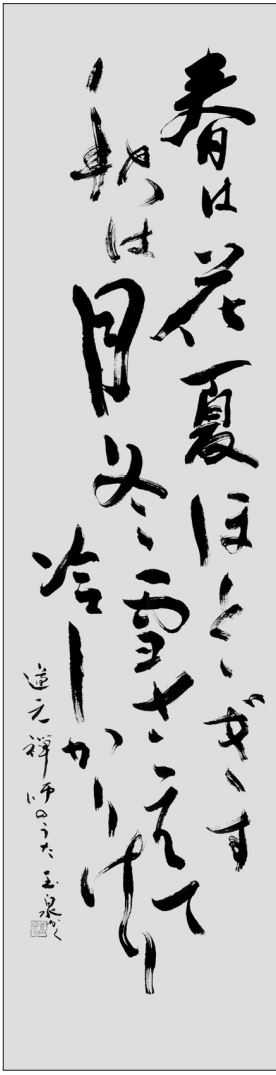 春は花夏ほとゝぎす
秋は月冬雪さえて
冷しかりけり
道元禅師のうた 玉泉かく